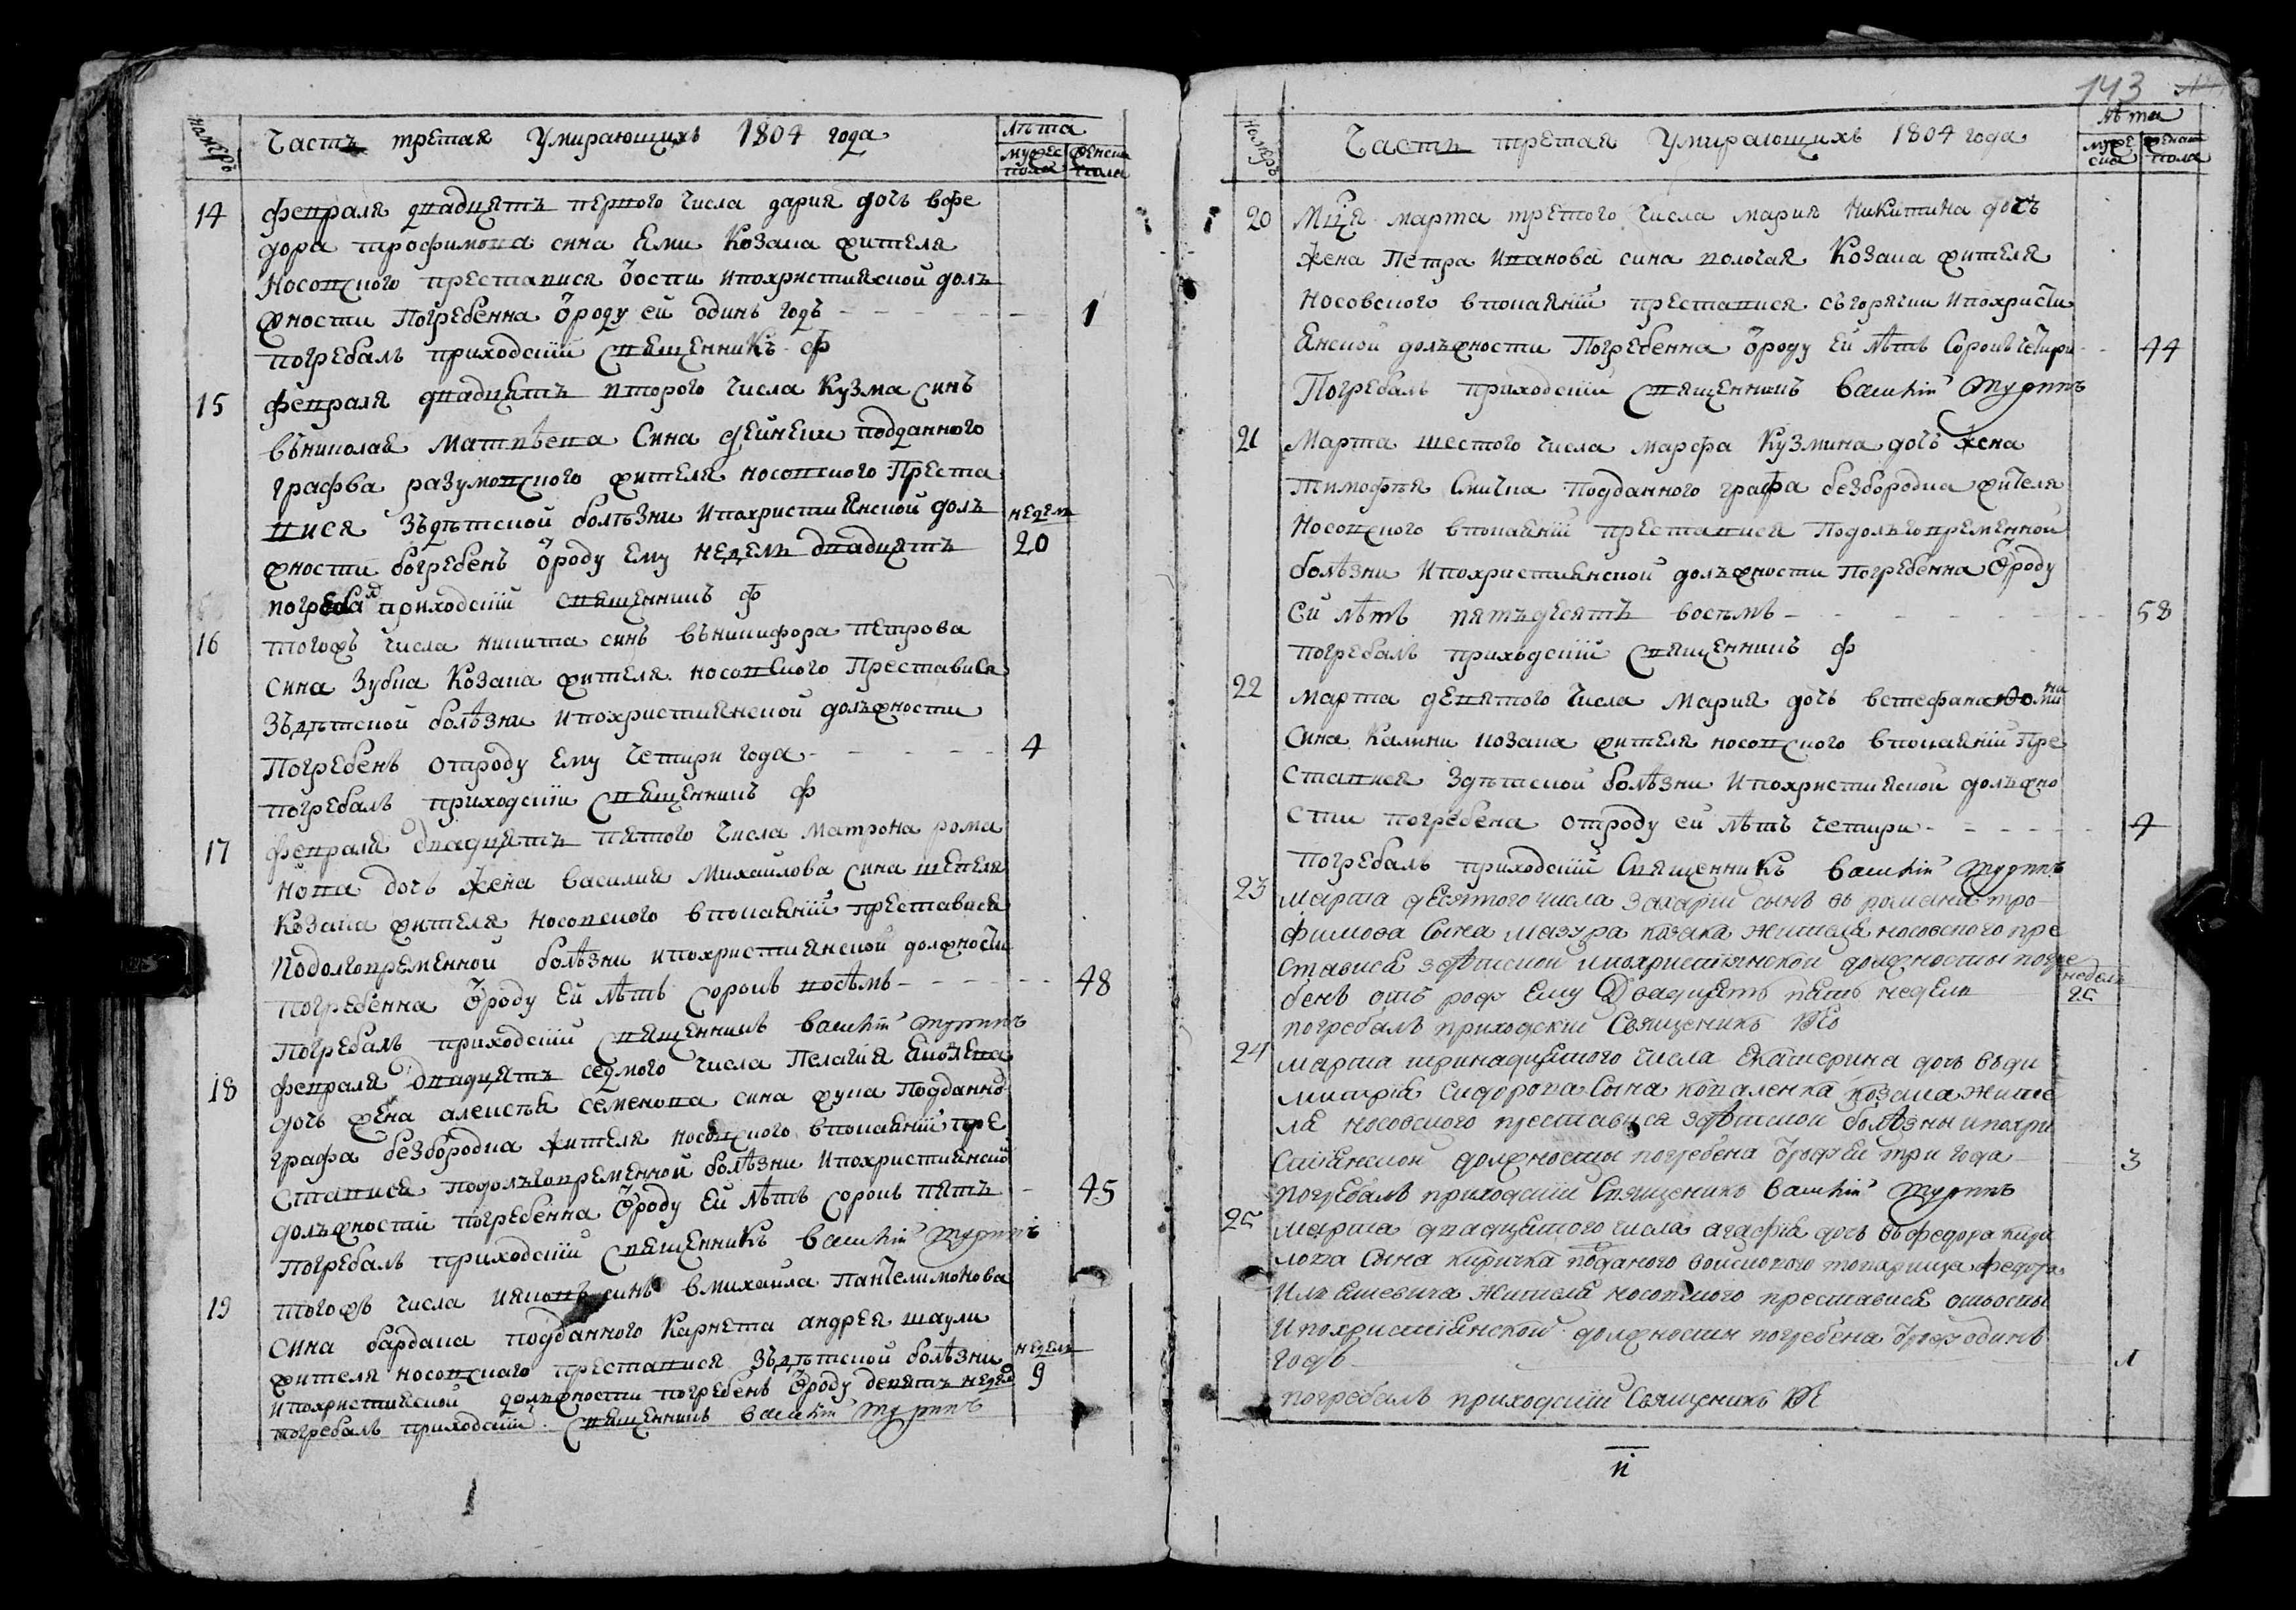 намеръ
Часть третая Умирающихъ 1804 года
лѣта
мужес пола
женска пола
14 февраля двадцять первого числа дария дочъ вфе
дора трофимова сина Еми Козака жителя
Носовского преставися ѿоспи ипохристияской долъ
жности Погребенна ѿроду ей одинъ годъ 1
погребалъ приходскій священникъ ф
15 февраля двадцять второго числа Кузма синъ
въниколая Матвѣева Сина подданного
графва разумовского жителя носовского Преста
вися Зъдѣтской болѣзни Ипохристиянской долъ
недель
жности богребенъ ѿроду Ему недель двадцять 20
погребал приходскій священникъ ф
16 тогожъ числа никита синъ въникифора петрова
сина Зубка Козака жителя носовского Преставися
Зъдѣтской болѣзни ипохристиянской должности
Погребенъ отроду Ему четири года 4
погребалъ приходскій священникъ ф
17 февраля двадцять пятого числа Матрона рома
нова дочъ жена василия Михайлова сина шепеля
Козака жителя носовского впокаяніи преставися
Подолговременной болѣзни ипохристиянской должности
погребенна ѿроду Ей лѣтъ сорокъ восѣмъ 48
Погребалъ приходскій священникъ
18 февраля двадцять седмого числа Пелагия Яковлева
дочъ жена алексѣя семенова сина жука Подданно
графа безбородка жителя носовского впокаяніи пре
ставися подолъговременной болѣзни Ипохристиянско
долъжности погребенна ѿроду Ей лѣтъ сорокъ пять 45
погребалъ приходскій священникъ
19 тогожъ числа ияковъ синъ вмихаила Пантелимонова
Сина бардака подданного Карнета андрея шаули
жителя носовскаго преставися Зъдѣтской болѣзни недель
ипохристияской долъжности погребенъ ѿроду девять недел 9
погребалъ приходскій священникъ
143
намеръ
Часть третая Умирающихъ 1804 года
лѣта
муже ска
женск пола
20 Мця марта третого числа мария Никитина дочъ
жена Петра Иванова сина вологая Козака жителя
носовского впокаяніи преставися съгорячки Ипохристи
Янской долъжности Погребенна ѿроду Ей лѣтъ Сорокъ четири 44
Погребалъ приходскій священникъ
21 Марта шестого числа марфа Кузмина дочъ жена
Тимофѣя Скичка подданного графа безбородка жителя
Носовского впокаяніи преставися Подолъговременной
болѣзни Ипохристиянской долъжности Погребенна ѿроду
Ей лѣтъ пятъдесятъ восѣмъ 58
погребалъ приходскій священникъ ф
22 марта девятого числа Мария дочъ встефана
Сина Калини козака жителя носовского впокаяніи Пре
ставися Здѣтской болѣзни Ипохристияской долъжно
сти погребена отроду ей лѣтъ четири 4
погребалъ приходскій Священникъ
23 марта десятого числа Захарій сынъ въ романа тро
фимова Сына мазура козака жителя носовского пре
ставися здѣтской ипохристіянской должности погре
недель
бенъ отъ род Ему Двадцять пять недель 25
погребалъ приходскій Священикъ
24 марта тринадцятого числа Екатерина дочъ въди
митрія Сидорова Сына коваленка козака жите
ля носовского преставися здѣтской болѣзны ипохри
стіянской должности погребена ѿрод Ей три года 3
погребалъ приходскій Священикъ
25 марта двадцятого числа агафія дочъ въфедора кири
лова Сына киричка поданого войскового товарища федора
Илляшевича жителя носовского преставися отъоспы
Ипохристіянской должности погребена ѿрод одинъ
годъ 1
погребалъ приходскій Священикъ